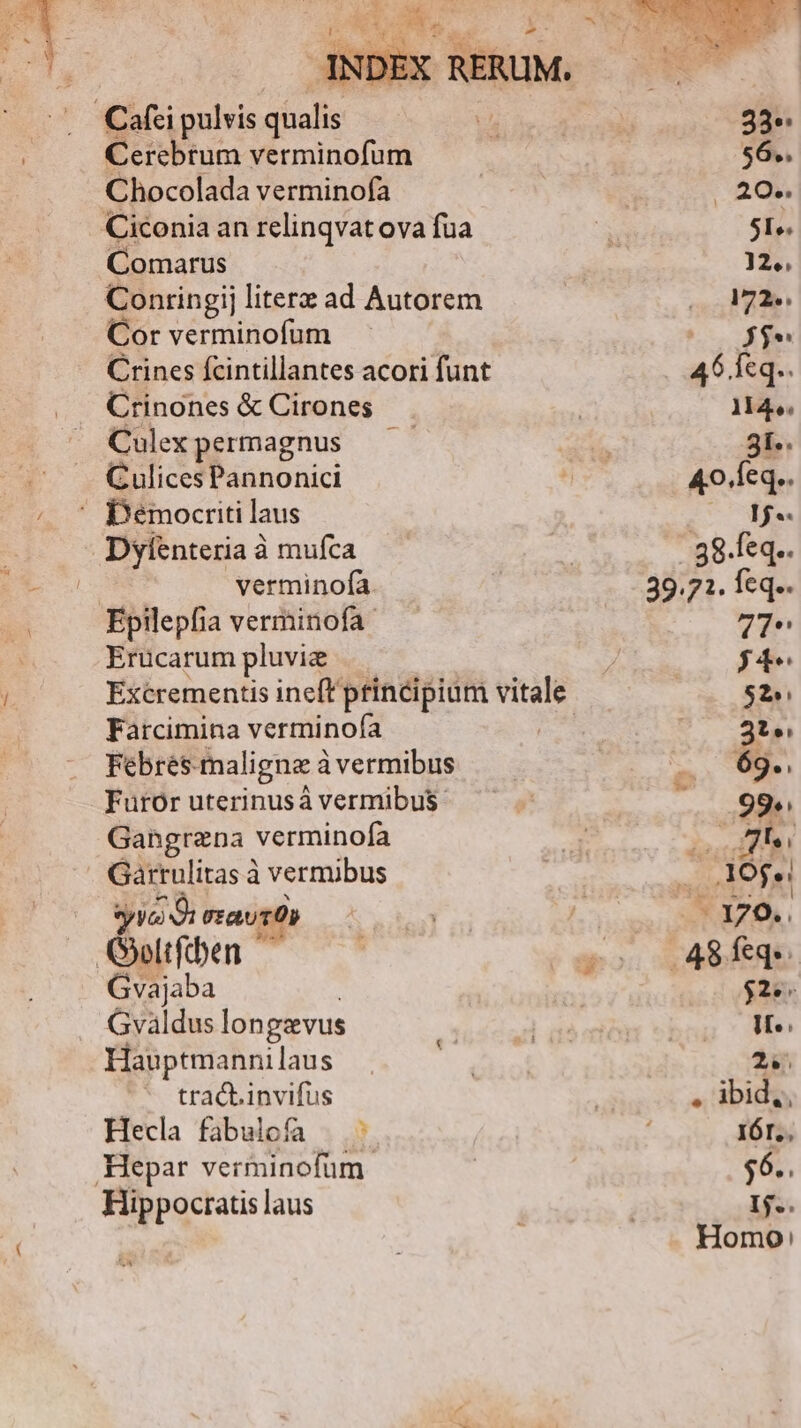 INDEX RERUM.
Cafei pulvis qualis 33.
Cerebrum verminoſum 56.
Chocolada verminoſa 20.
Ciconia an relinqvat ova ſua 51.
Comarus 12.
Conringij literæ ad Autorem 172.
Cor verminoſum 55.
Crines ſcintillantes acori ſunt 46.ſeq.
Crinones & Cirones 114.
Culex permagnus 31.
Culices Pannonici 40,ſeq.
Democriti laus 15.
Dyſenteria à muſca 38.ſeq.
verminoſa 39.72. ſeq.
Epilepſia verminoſa 77.
Erucarum pluviæ 54.
Excrementis ineſt principium vitale 52.
Farcimina verminoſa 32.
Febres malignæ à vermibus 69.
Furor uterinus à vermibus 99.
Gangræna verminoſa 71.
Garrulitas à vermibus 105.
γνῶθι σεαυτόν 170.
Goltſchen 48 ſeq.
Gvajaba 52.
Gvaldus longævus 11.
Hauptmanni laus 2.
tract. inviſus ibid.
Hecla fabuloſa 161.
Hepar verminoſum 56.
Hippocratis laus 15.
Homo